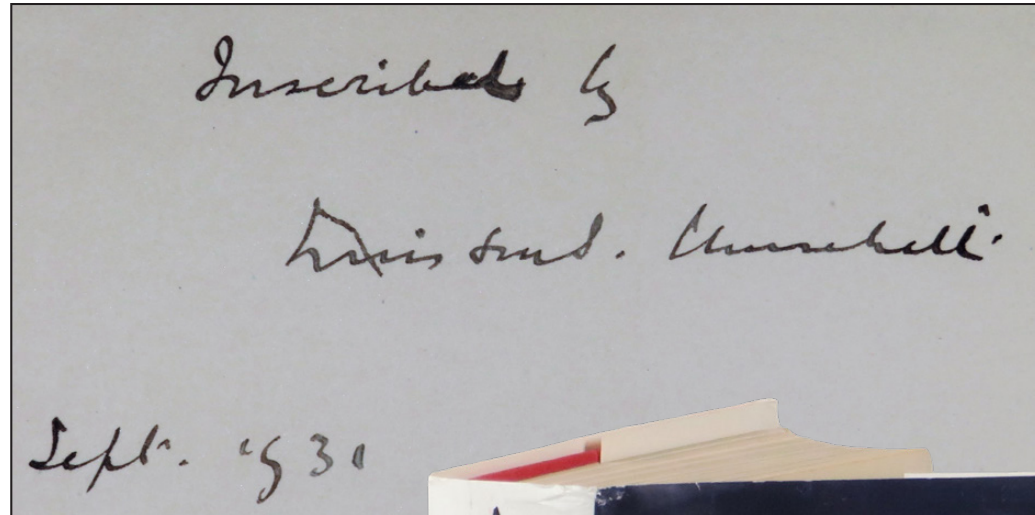 Inscribed by
Winston S. Churchill
Sept. 1931